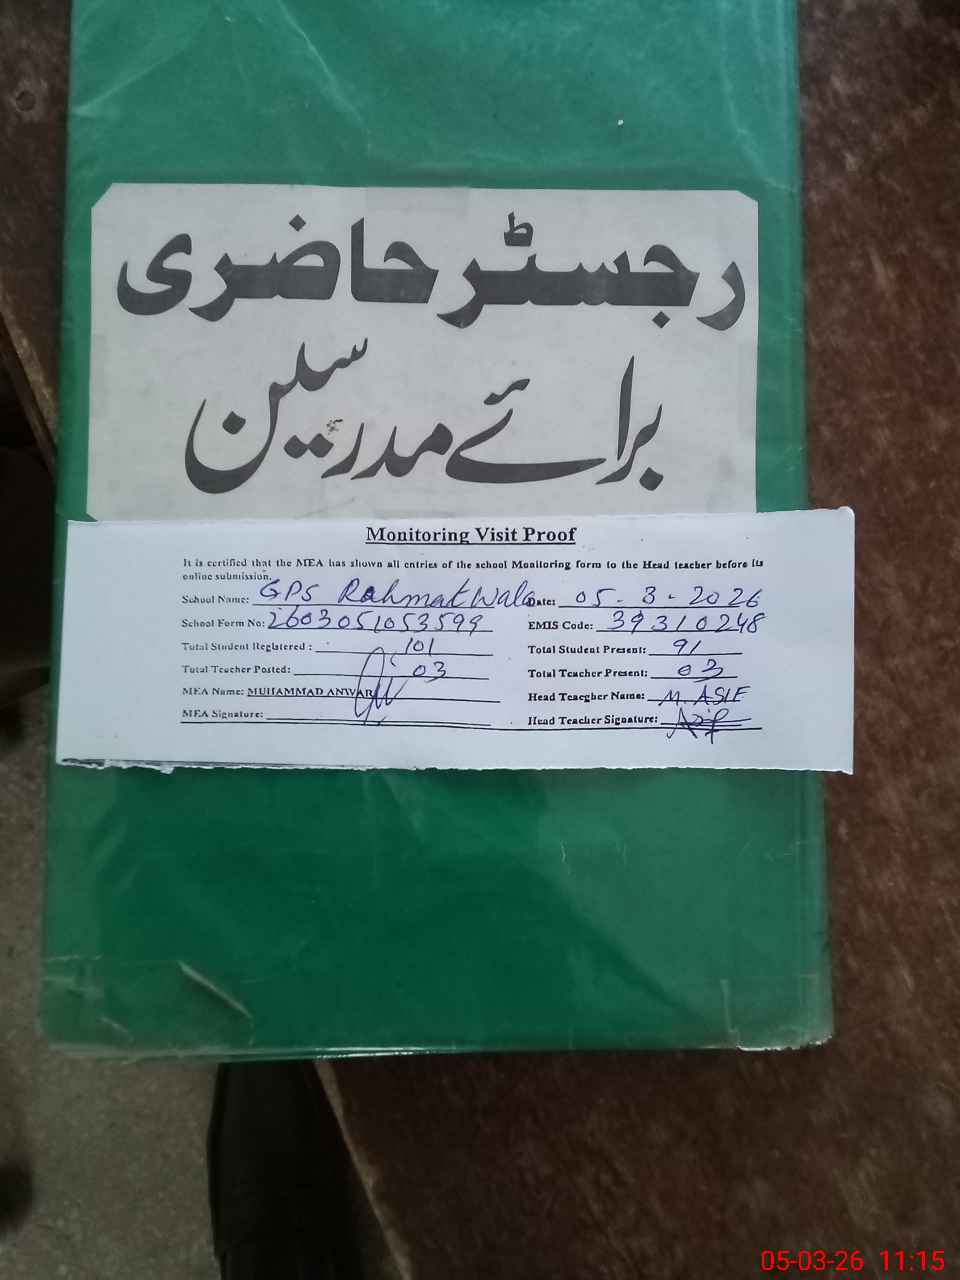 رجسٹر حاضری
برائے مدرسین
Monitoring Visit Proof
It is certified that the MEA has shown all entries of the school Monitoring form to the Head teacher before its
online submission.
School Name: GPS Rahmat Wala Date: 05-3-2026
School Form No: 2603051053599 EMIS Code: 39310248
Total Student Registered : 101 Total Student Present: 91
Total Teacher Posted: 03 Total Teacher Present: 03
MEA Name: MUHAMMAD ANWAR Head Teacgher Name: M. ASIF
MEA Signature: Head Teacher Signature: Asif
05-03-26 11:15